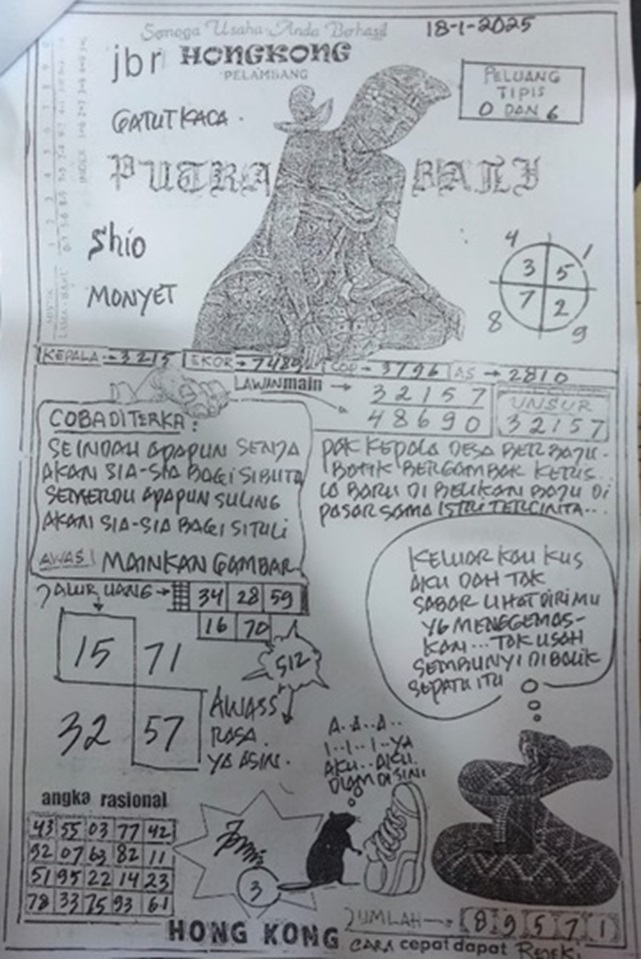 Semoga Usaha Anda Berhasil
18-1-2025
jbr HONGKONG
PELAMBANG
PELUANG
TIPIS
0 DAN 6
GATUTKACA.
PUTRA BATU
Shio
MONYET
4 1
3 5
7 2
8 9
KEPALA → 3215 EKOR → 7489 COP → 3796 AS → 2810
LAWAN main → 32157
48690
UNSUR
32157
COBA DITERKA:
SEINDAH APAPUN SENJA
AKAN SIA-SIA BAGI SIBUTA
SEMERDU APAPUN SULING
AKAN SIA-SIA BAGI SITULI
AWAS! MAINKAN GAMBAR
PAK KEPALA DESA BERBAJU-
BATIK BERGAMBAR KERIS..
IA BARU DI BELIKAN BAJU DI
PASAR SAMA ISTRI TERCINTA...
JALUR UANG → 34 28 59
16 70
15 71
32 57
512
AWASS
RASA
YA ASIN.
KELUAR KAU KUS
AKU DAH TAK
SABAR LIHAT DIRIMU
YG MENGGEMAS-
KAN... TAK USAH
SEMBUNYI DI BALIK
SEPATU ITU
A..A..A..
I..I..I..YA
AKU..AKU..
DIAM DI SINI
angka rasional
43 55 03 77 42
92 07 69 82 11
51 95 22 14 23
78 33 75 93 61
3
JUMLAH → 8 9 5 7 1
HONG KONG CARA cepat dapat REJEKI